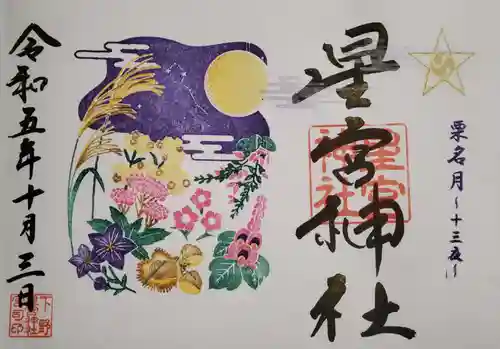 星宮神社
栗名月〜十三夜〜
令和五年十月三日
星宮神社
下野